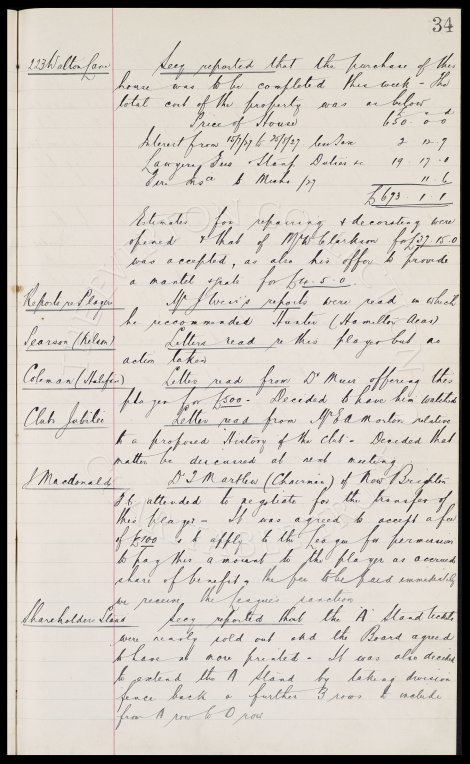 34
223 Walton Lane Secy reported that the purchase of this
house was to be completed this week - The
total cost of the property was as below
Price of House 650 . 0 . 0
Interest from 15/7/27 to 25/8/27 less Tax 2 . 12 . 9
Lawyers Fees & Stamp Duties &c 19 . 17 . 0
Fire Insce to Michs /27 11 . 6
£673 . 1 . 1
Estimates for repairing & decorating were
opened & that of Mr W Clarkson for £37.15.0
was accepted, as also his offer to provide
a mantel & grate for £4.5.0.
Reports re Players Mr J Weir's reports were read in which
he recommended Hunter (Hamilton Acas)
Pearson (Nelson) Letters read re this player but no
action taken
Coleman (Halifax) Letter read from Dr Muir offering this
player for £500 - Decided to have him watched
Clubs Jubilee Letter read from Mr E A Morton relative
to a proposed History of the Club - Decided that
matter be discussed at next meeting
J Macdonald Dr T Martlew (Chairman) of New Brighton
F.C. attended to negotiate for the transfer of
this player - It was agreed to accept a fee
of £100 & to apply to the League for permission
to pay this amount to the player as accrued
share of benefit, the fee to be paid immediately
we receive the League's sanction
Shareholders Stand Secy reported that the 'A' Stand tickets
were nearly sold out and the Board agreed
to have no more printed - It was also decided
to extend the A Stand by taking division
fence back a further 3 rows to include
from A row to O row